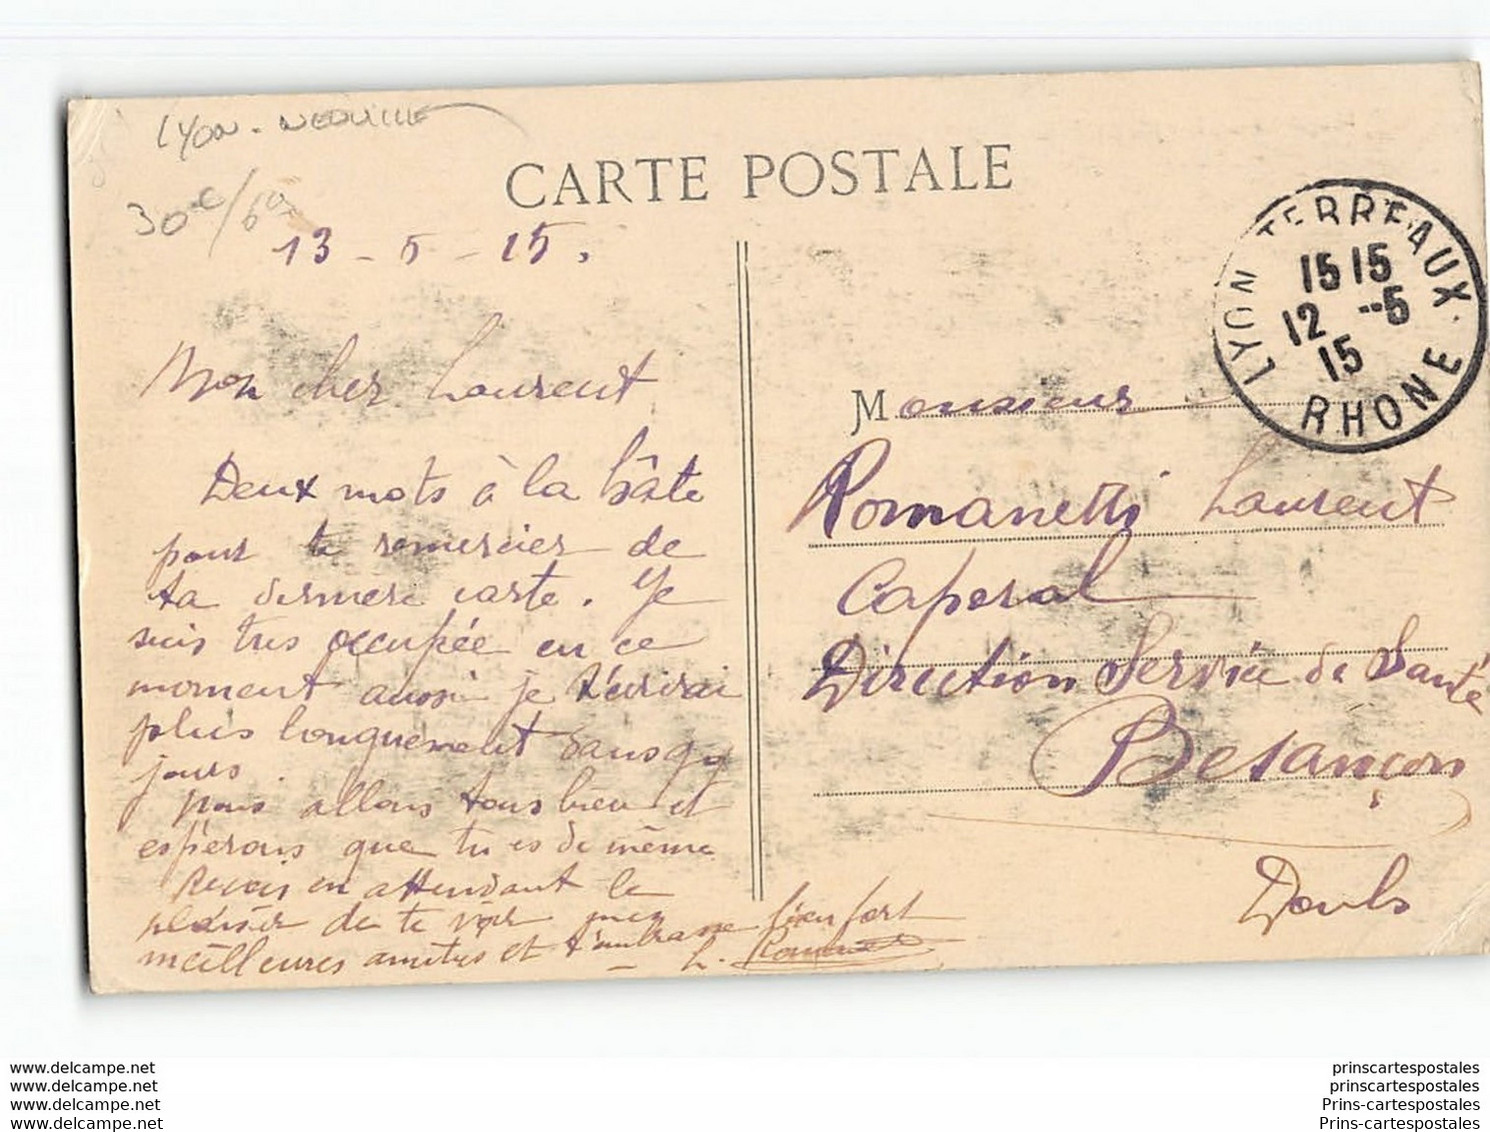 LYON - NEUVILLE
CARTE POSTALE
30
13 - 5 - 15.
LYON TERREAUX
15 15
12 -5
15
RHONE
Mon cher Laurent
Deux mots à la hâte
pour te remercier de
ta dernière carte. Je
suis très occupée en ce
moment aussi je t'écrirai
plus longuement dans qq
jours.
Nous allons tous bien et
espérons que tu es de même
Reçois en attendant le
plaisir de te voir mes
meilleures amitiés et t'embrasse bien fort
L.
Monsieur
Romanetti Laurent
Caporal
Direction Service de Santé
Besançon
Doubs
www.delcampe.net
www.delcampe.net
www.delcampe.net
www.delcampe.net
prinscartespostales
prinscartespostales
Prins-cartespostales
Prins-cartespostales